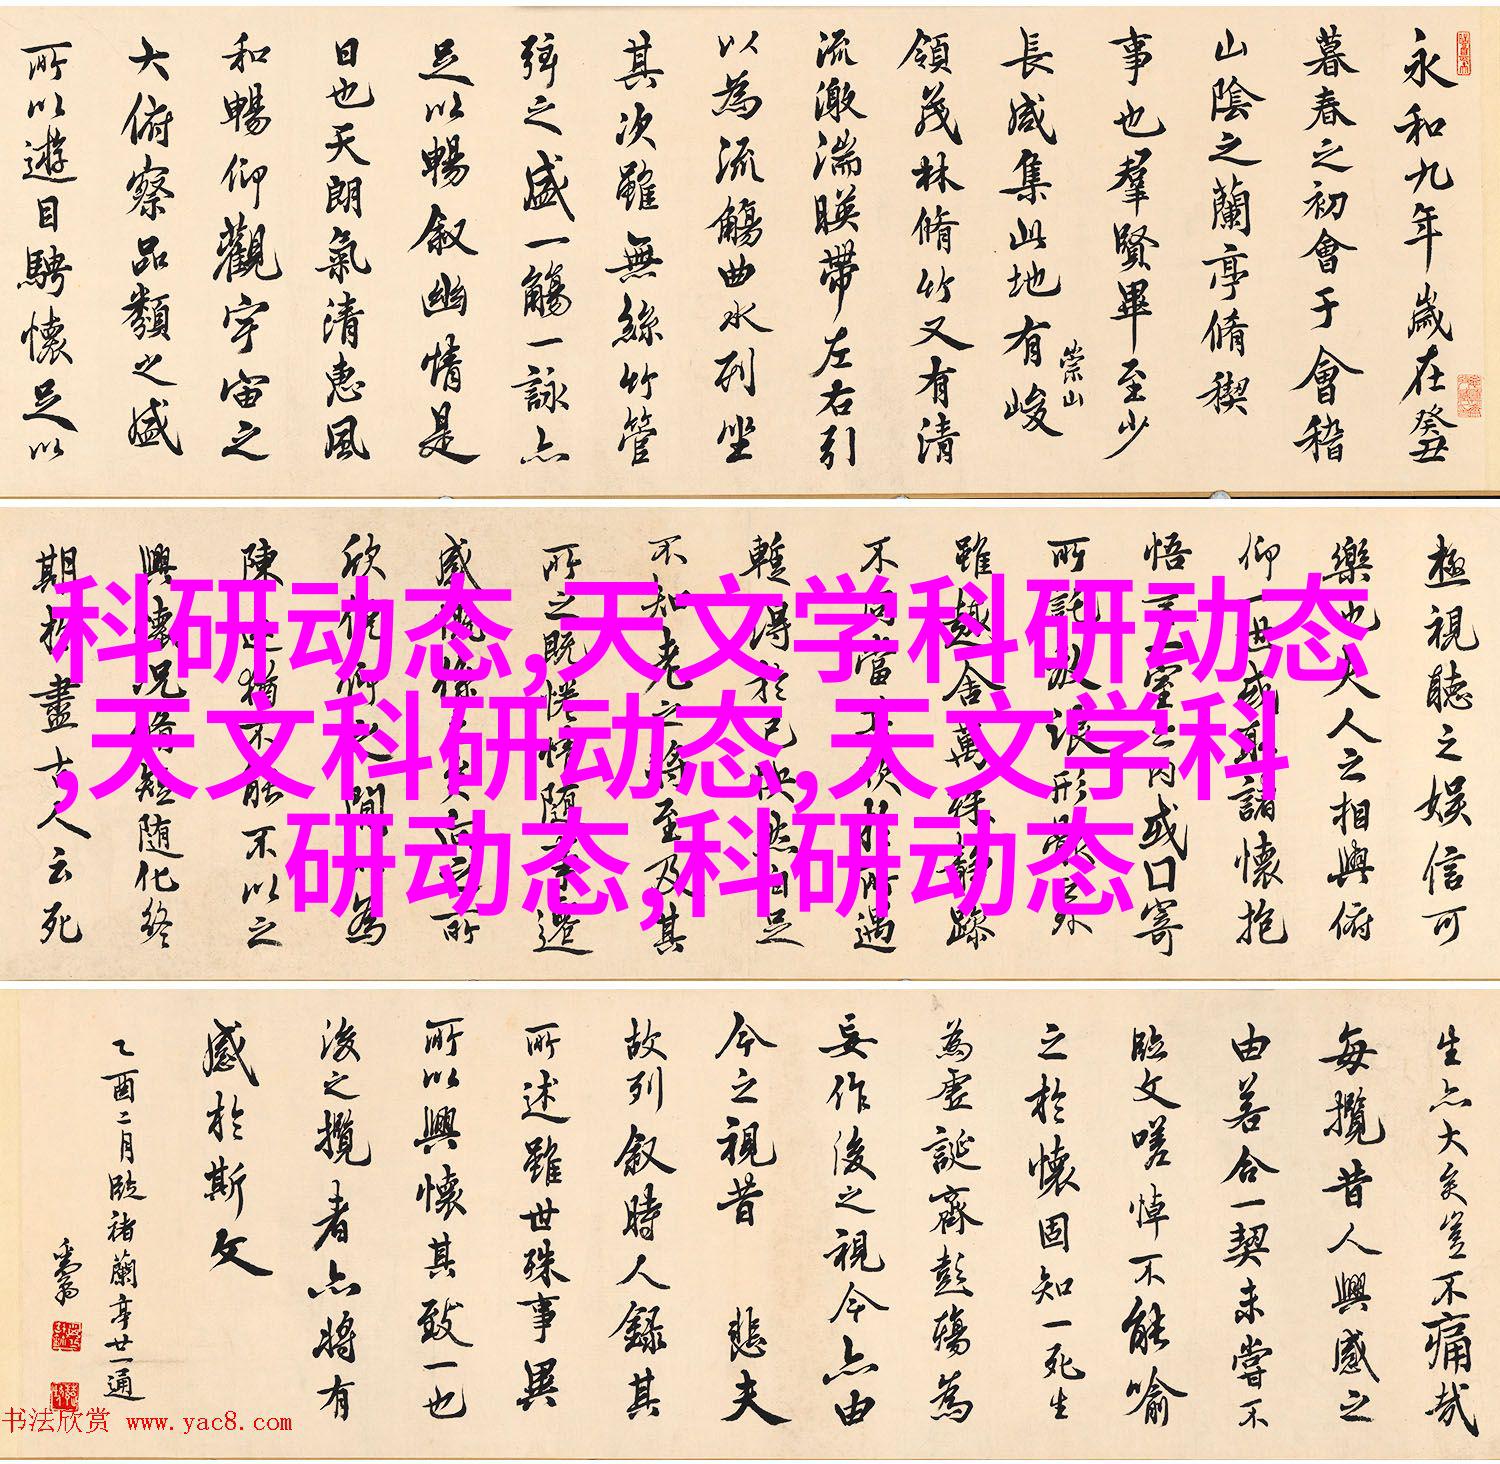 永和九年歲在癸丑
暮春之初會于會稽
山陰之蘭亭脩稧
事也羣賢畢至少
長咸集此地有峻
崇山
領茂林脩竹又有清
流激湍暎帶左右引
以為流觴曲水列坐
其次雖無絲竹管
弦之盛一觴一詠亦
足以暢叙幽情是
日也天朗氣清惠風
和暢仰觀宇宙之
大俯察品類之盛
所以遊目騁懷足以
極視聽之娛信可
樂也夫人之相與俯
仰一世或取諸懷抱
悟言一室之內或口寄
所託放浪形骸之外
雖趣舍萬殊靜躁
不同當其欣於所遇
暫得於己怏然自足
不知老之將至及其
所之既惓情隨事遷
感慨係之矣向之所
欣俛仰之間以為
陳迹猶不能不以之
興懷況脩短随化終
期於盡古人云死
生亦大矣豈不痛哉
每攬昔人興感之
由若合一契未嘗不
臨文嗟悼不能喻
之於懷固知一死生
為虛誕齊彭殤為
妄作後之視今亦由
今之視昔 悲夫
故列叙時人錄其
所述雖世殊事異
所以興懷其致一也
後之攬者亦將有
感於斯文
乙酉二月臨褚蘭亭廿一通
科研动态,天文学科研动态
,天文科研动态,天文学科
研动态,科研动态
书法欣赏 www.yac8.com